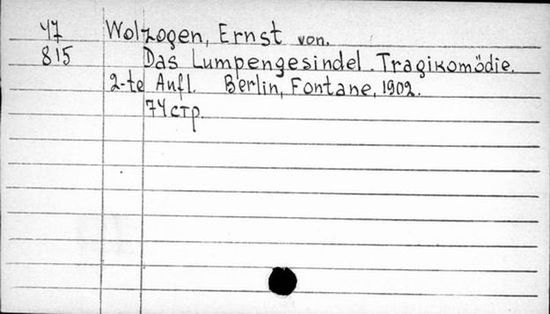 У7 Wolzogen, Ernst von.
815 Das Lumpengesindel. Tragikomödie.
2-te Aufl. Berlin, Fontane, 1902.
74 стр.